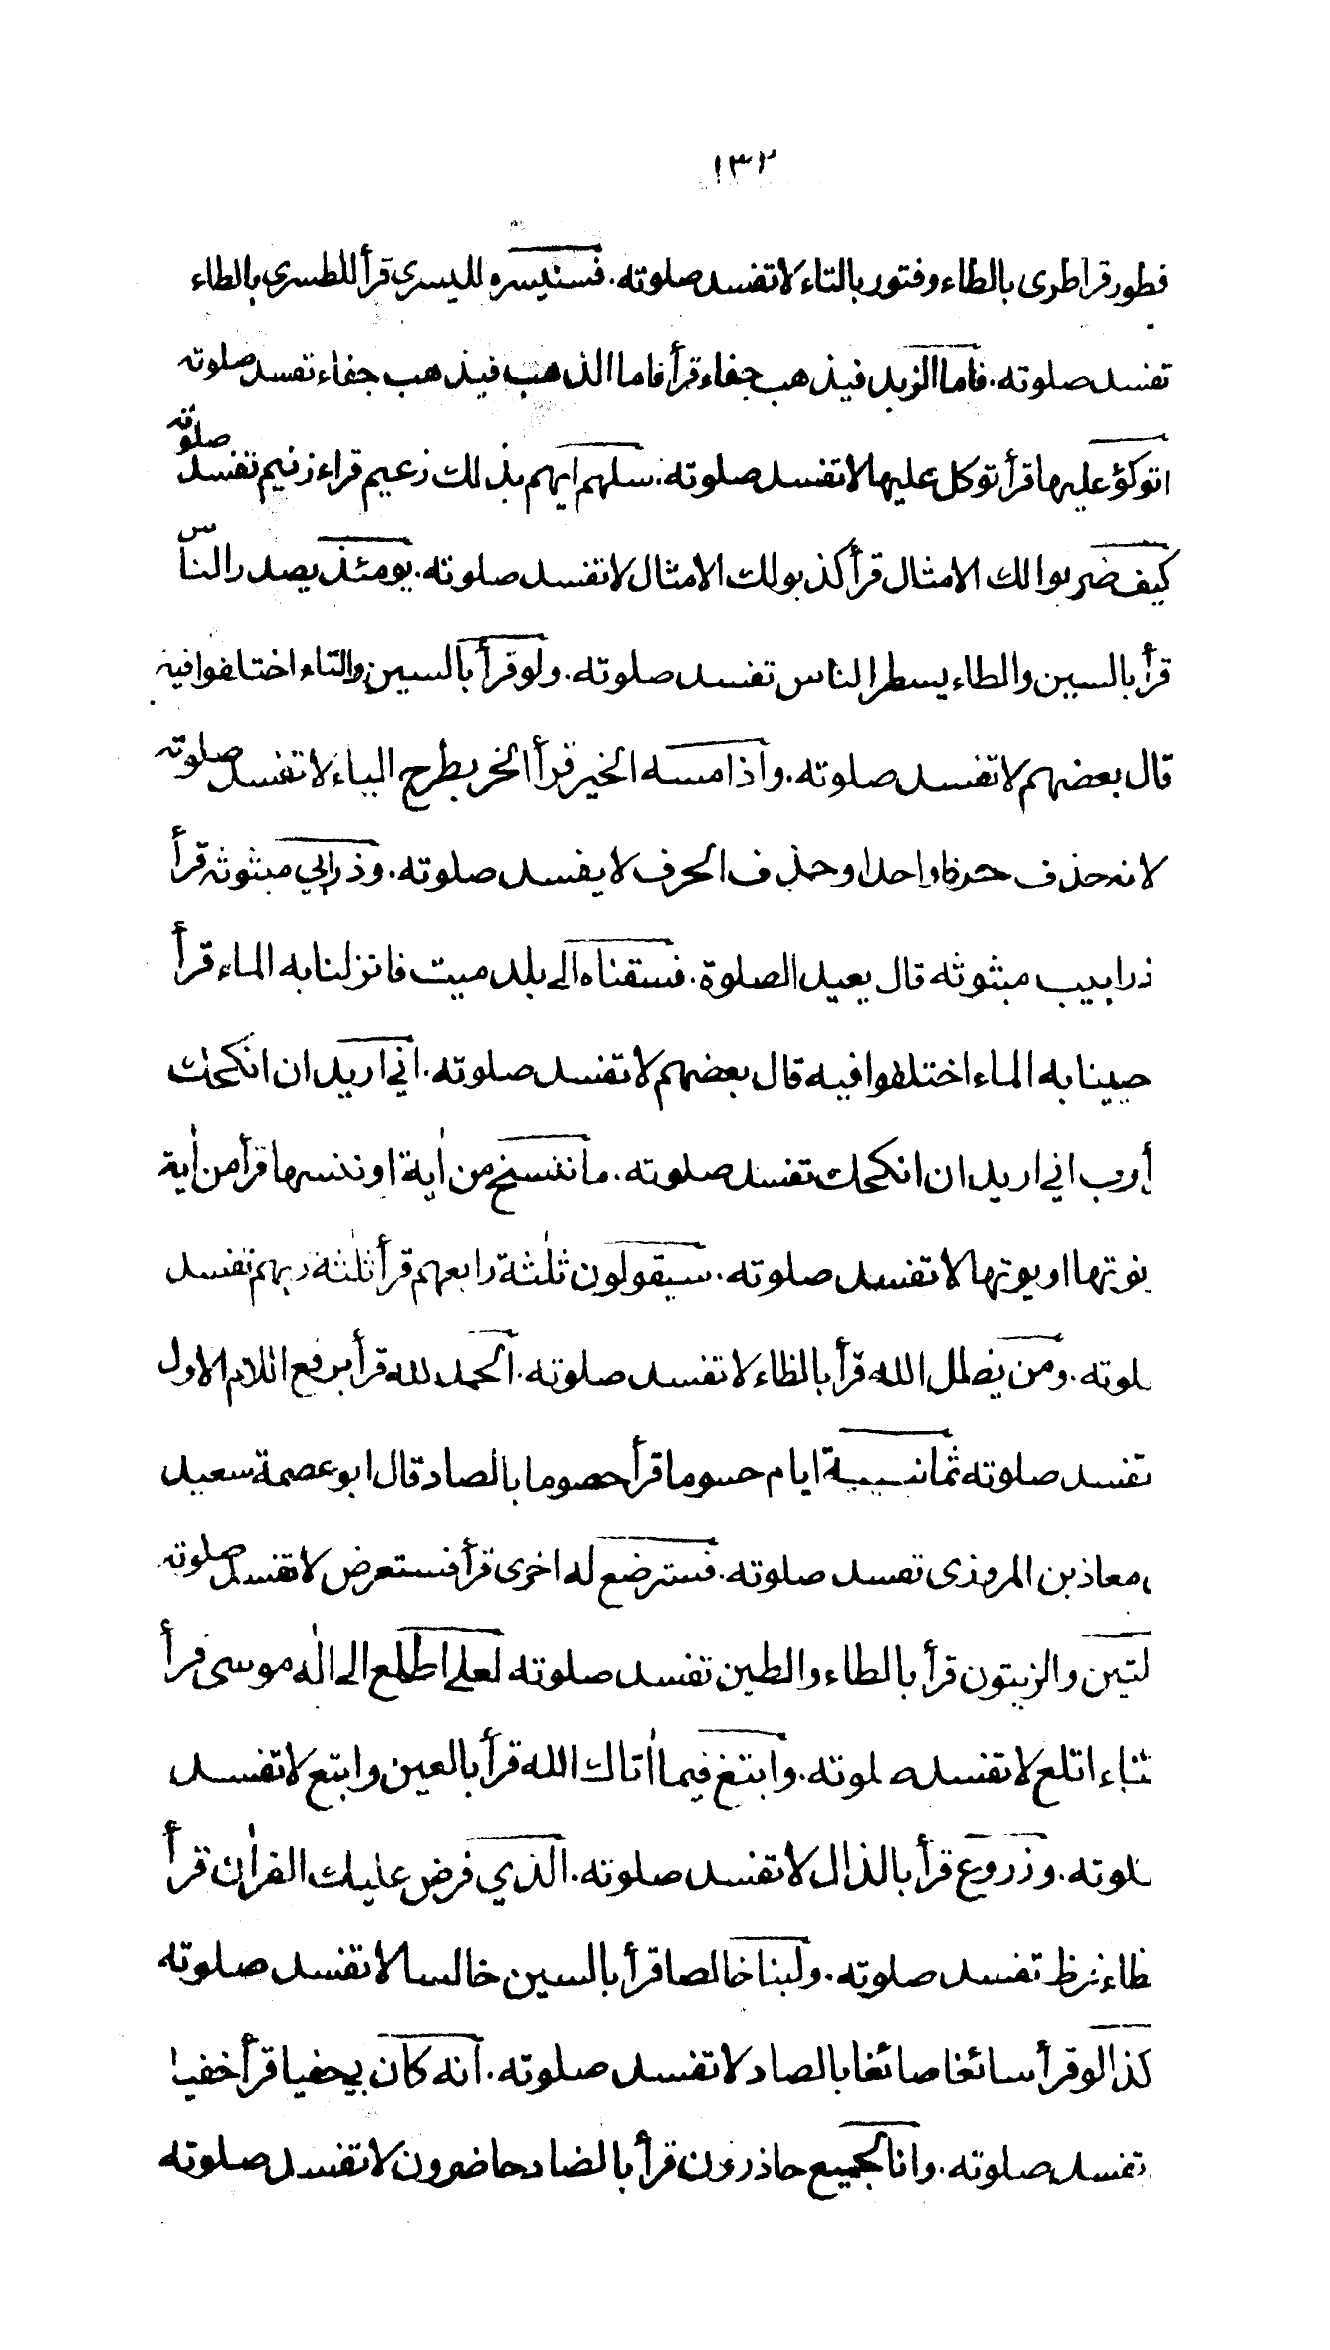 ١٣٢
فطور قرا طرى بالطاء وفتور بالتاء لا تفسد صلوته . فسنيسره لليسرى قرأ للطسرى بالطاء
تفسد صلوته . فاما الزبد فيذهب جفاء قرأ فاما الذهب فيذهب جفاء تفسد صلوته
اتوكؤ عليها قرأ توكل عليها لا تفسد صلوته . سلهم ايهم بذلك زعيم قراء زنيم تفسد صلوته
كيف ضربوا لك الامثال قرأ كذبو لك الامثال لا تفسد صلوته . يومئذ يصدر الناس
قرأ بالسين والطاء يسطر الناس تفسد صلوته . ولو قرأ بالسين والتاء اختلفوا فيه
قال بعضهم لا تفسد صلوته . واذا مسه الخير قرأ الخر بطرح الياء لا تفسد صلوته
لانه حذف حرفا واحدا وحذف الحرف لا يفسد صلوته . وذرابي مبثوثه قرأ
ذرابيب مبثوثه قال يعيد الصلوة . فسقناه الى بلد ميت فانزلنا به الماء قرأ
صيبنا به الماء اختلفوا فيه قال بعضهم لا تفسد صلوته . اني اريد ان انكحك
أ ورب اني اريد ان انكحك تفسد صلوته . ما ننسخ من اٰية او ننسها قرأ من اٰية
نوتها او يوتها لا تفسد صلوته . سيقولون ثلٰثة رابعهم قرأ ثلٰثة ربهم تفسد
لوته . ومن يضلل الله قرأ بالظاء لا تفسد صلوته . الحمد لله قرأ برفع اللام الاول
تفسد صلوته ثمانية ايام حسوما قرأ حصوما بالصاد قال ابو عصمة سعيد
معاذ بن المروذى تفسد صلوته . فسترضع له اخرى قرأ فستعرض لا تفسد صلوته
لتين والزيتون قرأ بالطاء والطين تفسد صلوته لعلي اطلع الى الٰه موسى قرأ
تاء اتلع لا تفسد صلوته . وابتغ فيما اٰتاك الله قرأ بالعين وابتع لا تفسد
لوته . وزروع قرأ بالذال لا تفسد صلوته . الذي فرض عليك القراٰن قرأ
ظاء فرظ تفسد صلوته . ولبنا خالصا قرأ بالسين خالسا لا تفسد صلوته
كذا لو قرأ سائغا صائغا بالصاد لا تفسد صلوته . انه كان بي حفيا قرأ خفيا
تفسد صلوته . وانا لجميع حاذرون قرأ بالضاد حاضرون لا تفسد صلوته